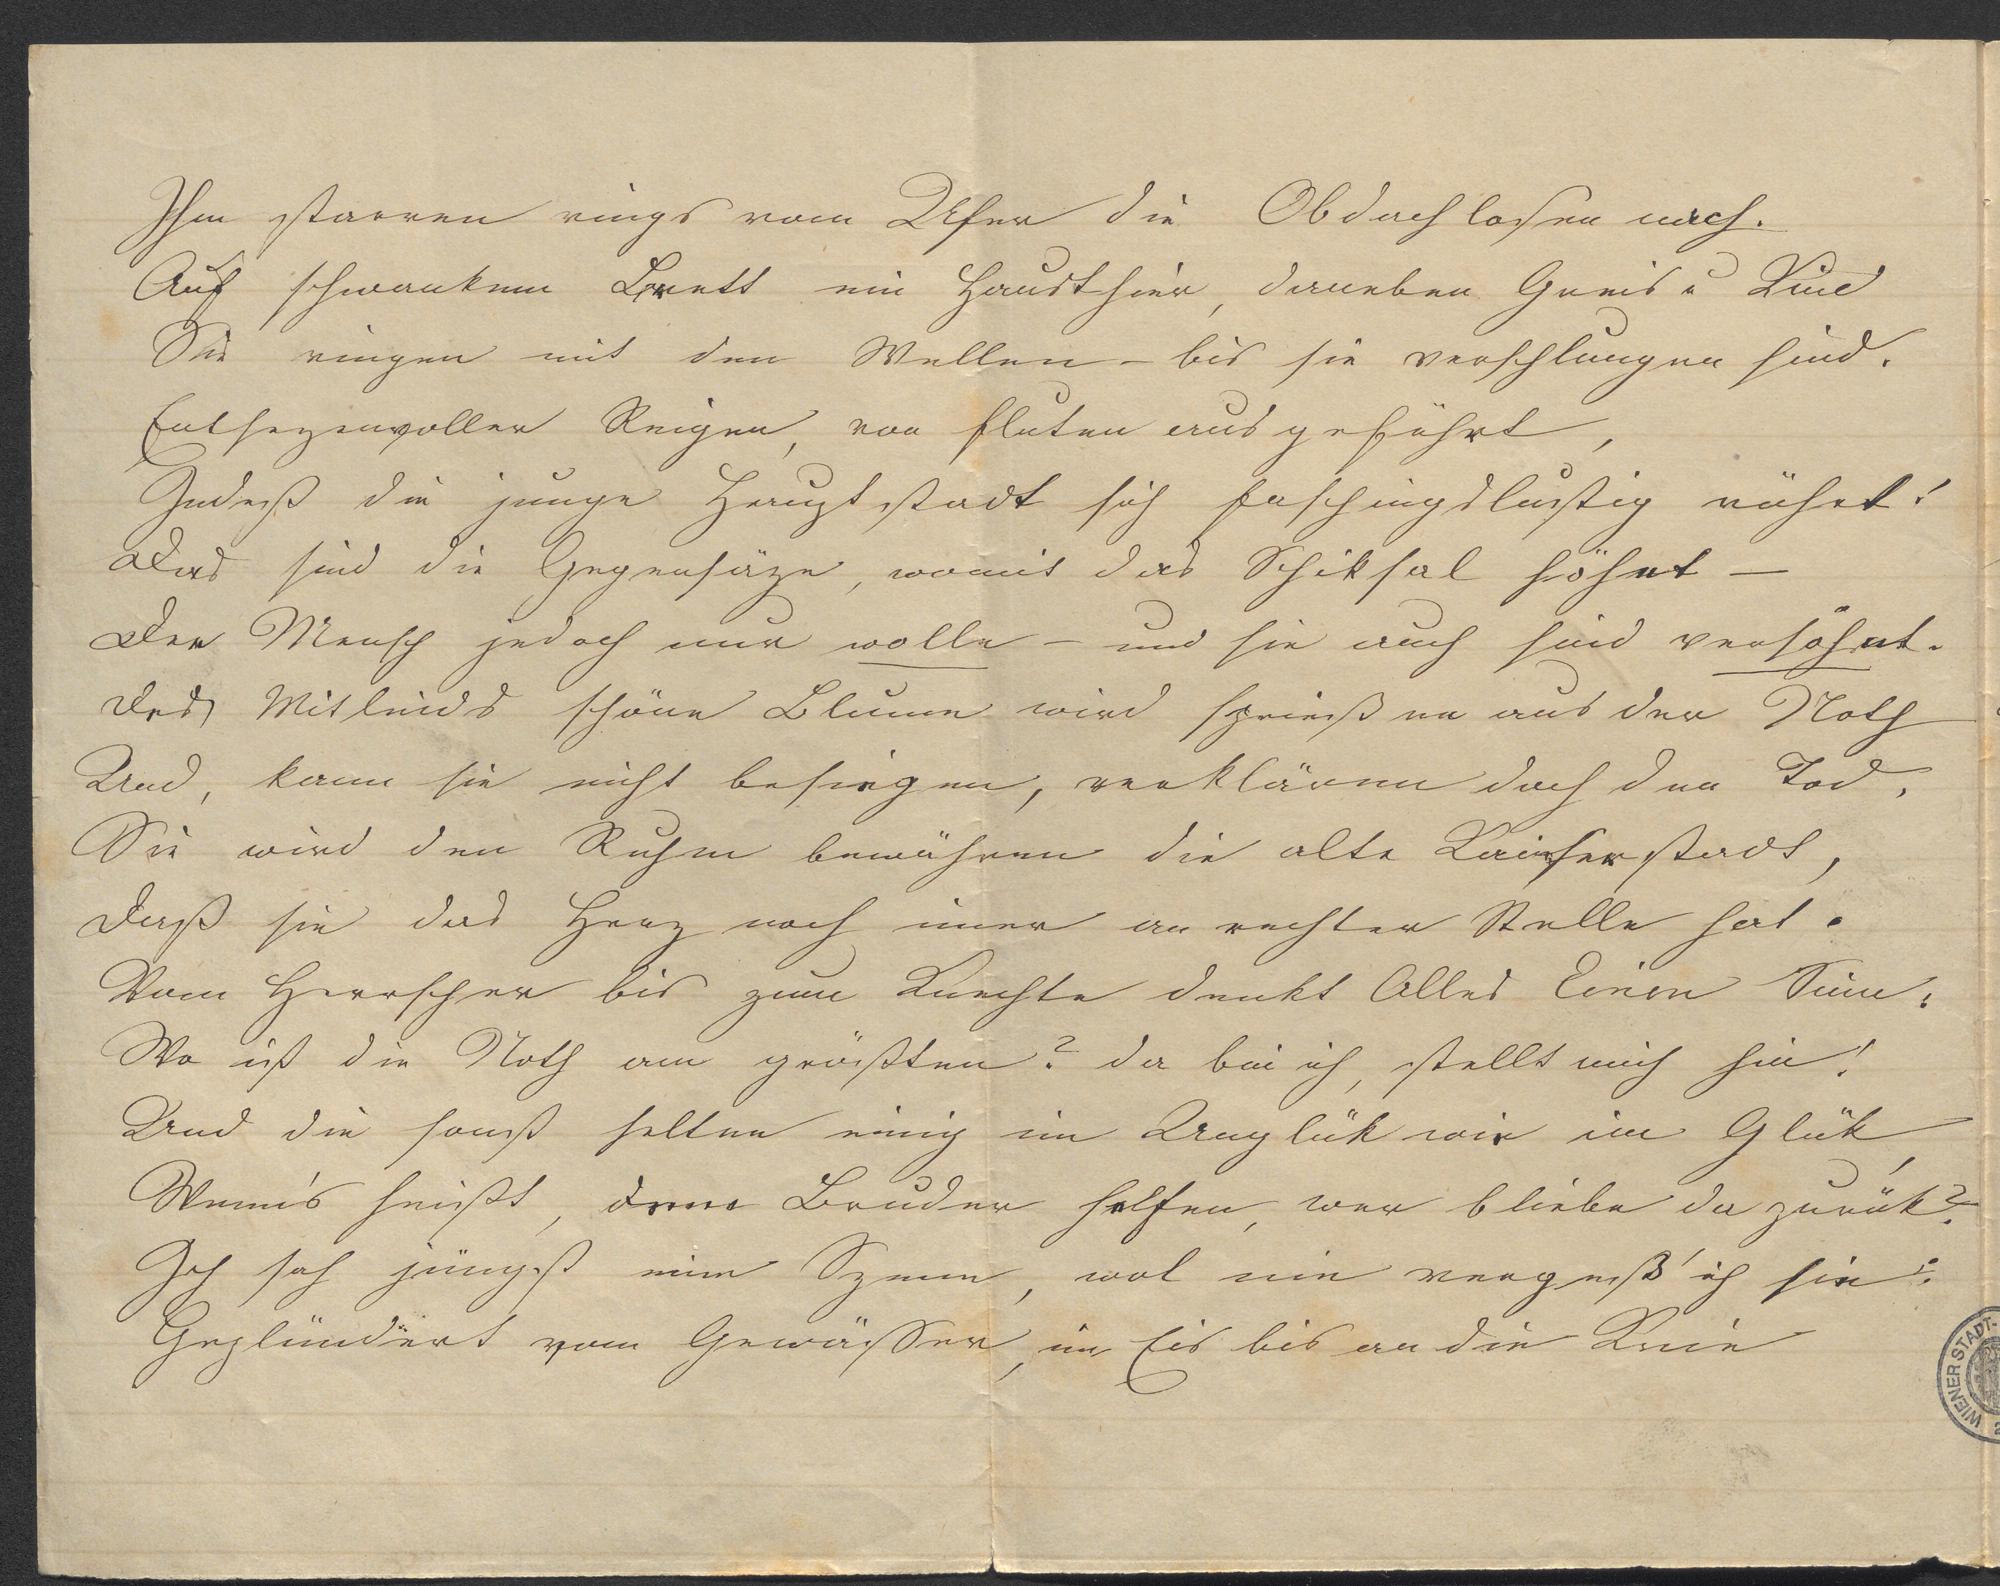 Ihm starren rings vom Ufer die Obdachlosen nach.
Auf schwankem Brett ein Hausthier, daneben Greis u Kind
Sie ringen mit den Wellen – bis sie verschlungen sind.
Entsezenvoller Reigen, von Fluten ausgeführt,
Indeß die junge Hauptstadt sich faschingslustig rührt!
Das sind die Gegensäze, womit das Schiksal höhnt –
Der Mensch jedoch nur wolle – und sie auch sind versöhnt.
Des Mitleids schöne Blume wird sprießen aus der Noth
Und, kann sie nicht besiegen, verklären doch den Tod.
Sie wird den Ruhm bewähren die alte Kaiserstadt,
Daß sie das Herz noch imer an rechter Stelle hat.
Vom Herrscher bis zum Knechte denkt Alles Einen Sinn:
Wo ist die Noth am größten? da bin ich, stellt mich hin!
Und die sonst selten einig im Unglük wie im Glük,
Wenn's heißt, dem Bruder helfen, wer bliebe da zurük?
Ich sah jüngst eine Szene, wol nie vergeß' ich sie:
Geplündert vom Gewässer, im Eis bis an die Knie
WIENER STADT-